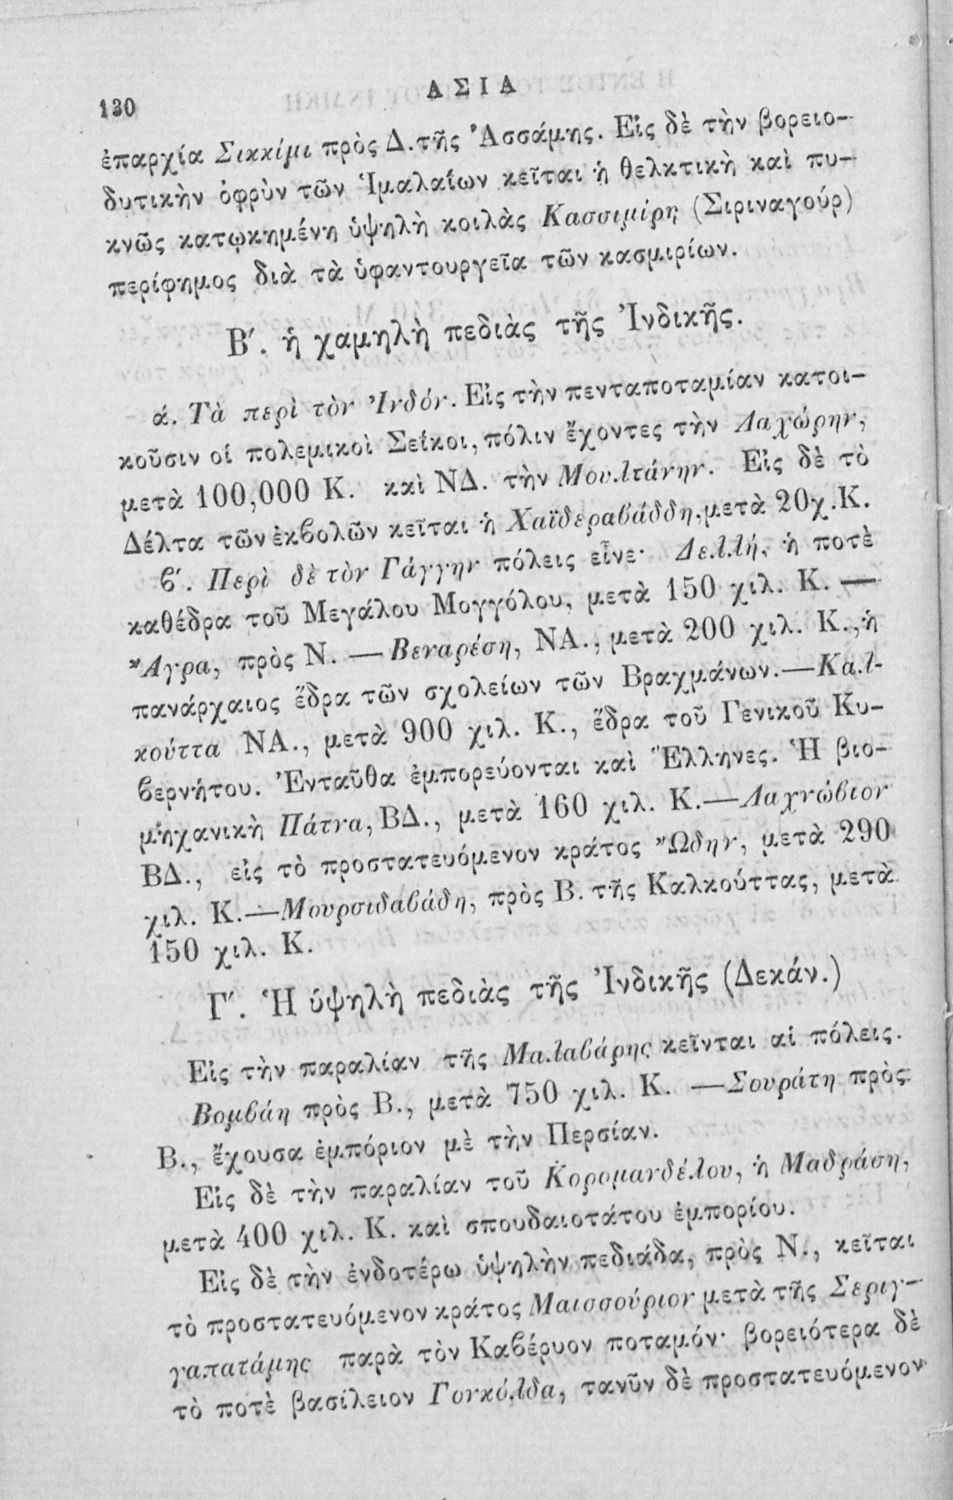 130
ΑΣΙΑ
ἐπαρχία Σικκίμι πρὸς Δ. τῆς Ἀσσάμης. Εἰς δὲ τὴν βορειο-
δυτικὴν ὀφρὺν τῶν Ἱμαλαΐων κεῖται ἡ θελκτικὴ καὶ πυ-
κνῶς κατῳκημένη ὑψηλὴ κοιλὰς Κασσιμίρη (Σιριναγούρ)
περίφημος διὰ τὰ ὑφαντουργεῖα τῶν κασμιρίων.
Β'. ἡ χαμηλὴ πεδιὰς τῆς Ἰνδικῆς.
ά. Τὰ περὶ τὸν Ἰνδόν. Εἰς τὴν πενταποταμίαν κατοι-
κοῦσιν οἱ πολεμικοὶ Σεΐκοι, πόλιν ἔχοντες τὴν Λαχώρην,
μετὰ 100,000 Κ. καὶ ΝΔ. τὴν Μουλτάνην. Εἰς δὲ τὸ
Δέλτα τῶν ἐκϐολῶν κεῖται ἡ Χαϊδεραϐάδδη, μετὰ 20 χ. Κ.
ϐ'. Περὶ δὲ τὸν Γάγγην πόλεις εἶνε· Δελλή, ἡ ποτὲ
καθέδρα τοῦ Μεγάλου Μογγόλου, μετὰ 150 χιλ. Κ. —
Ἄγρα, πρὸς Ν. — Βεναρέση, ΝΑ., μετὰ 200 χιλ. Κ., ἡ
πανάρχαιος ἕδρα τῶν σχολείων τῶν Βραχμάνων. — Καλ-
κούττα ΝΑ., μετὰ 900 χιλ. Κ., ἕδρα τοῦ Γενικοῦ Κυ-
ϐερνήτου. Ἐνταῦθα ἐμπορεύονται καὶ Ἕλληνες. Ἡ βιο-
μηχανικὴ Πάτνα, ΒΔ., μετὰ 160 χιλ. Κ. — Λαχνώϐιον
ΒΔ., εἰς τὸ προστατευόμενον κράτος Ὤδην, μετὰ 290
χιλ. Κ. — Μουρσιδαϐάδη, πρὸς Β. τῆς Καλκούττας, μετὰ
150 χιλ. Κ.
Γ'. Ἡ ὑψηλὴ πεδιὰς τῆς Ἰνδικῆς (Δεκάν.)
Εἰς τὴν παραλίαν τῆς Μαλαϐάρης κεῖνται αἱ πόλεις.
Βομϐάη πρὸς Β., μετὰ 750 χιλ. Κ. — Σουράτη πρὸς
Β., ἔχουσα ἐμπόριον μὲ τὴν Περσίαν.
Εἰς δὲ τὴν παραλίαν τοῦ Κορομανδέλου, ἡ Μαδράση,
μετὰ 400 χιλ. Κ. καὶ σπουδαιοτάτου ἐμπορίου.
Εἰς δὲ τὴν ἐνδοτέρω ὑψηλὴν πεδιάδα, πρὸς Ν., κεῖται
τὸ προστατευόμενον κράτος Μαισσούριον μετὰ τῆς Σεριγ-
γαπατάμης παρὰ τὸν Καϐέρυον ποταμόν· βορειότερα δὲ
τὸ ποτὲ βασίλειον Γονκόλδα, τανῦν δὲ προστατευόμενον